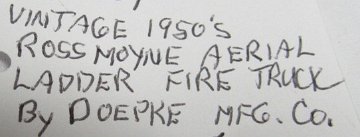 VINTAGE 1950'S
ROSSMOYNE AERIAL
LADDER FIRE TRUCK
By DOEPKE MFG. Co.